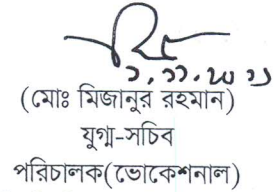 (মোঃ মিজানুর রহমান)
যুগ্ম-সচিব
পরিচালক(ভোকেশনাল)